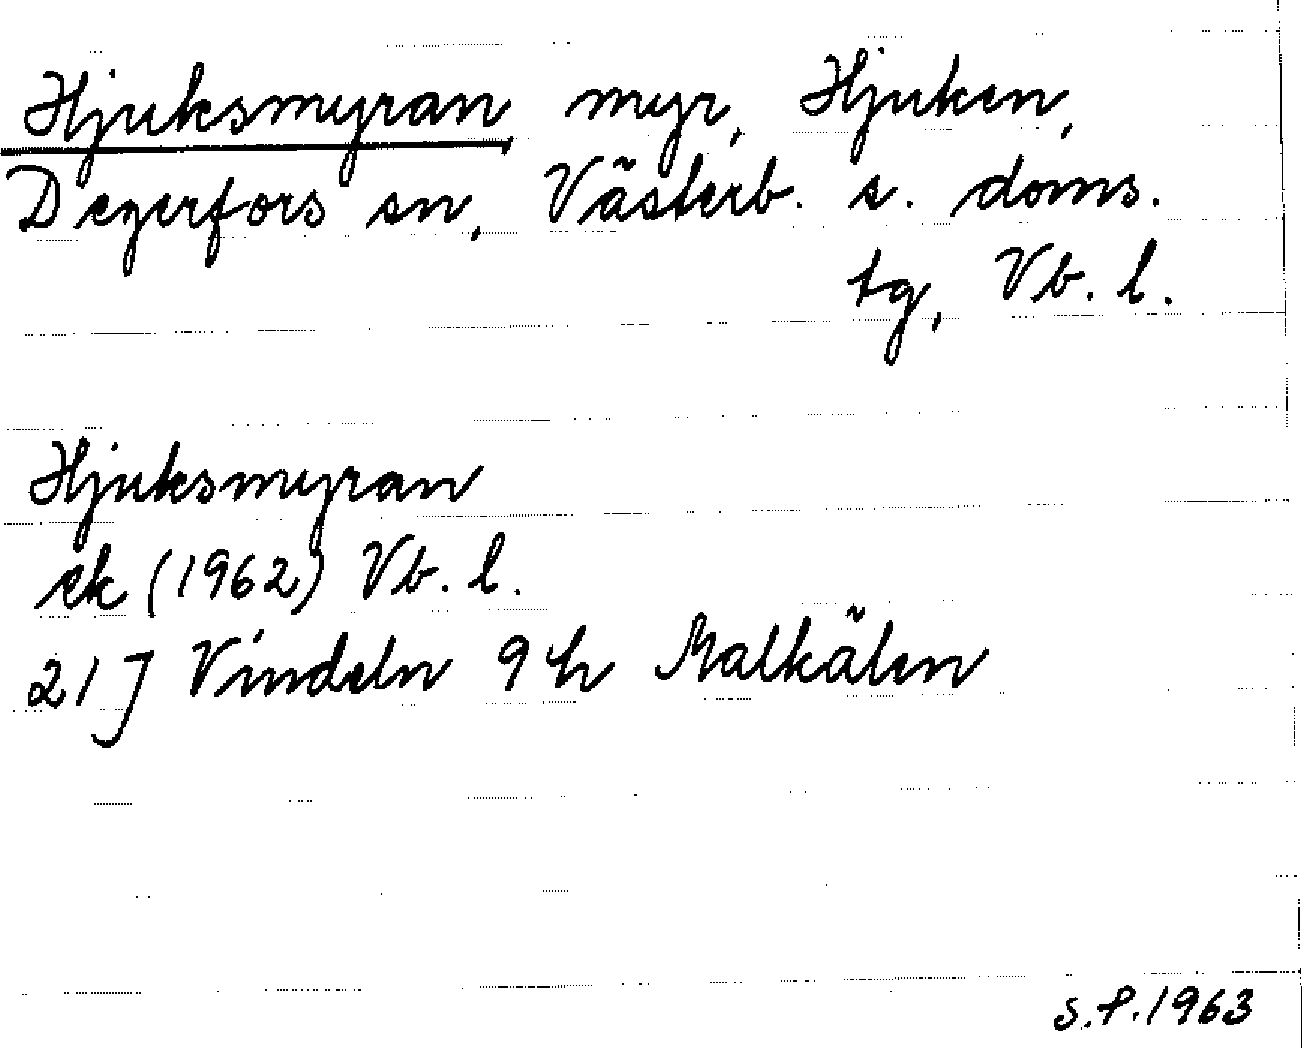 Hjuksmyran, myr, Hjuken,
Degerfors sn, Västerb. s. doms.
tg, Vb. l.
Hjuksmyran
ek (1962) Vb. l.
21 J Vindeln 9 h Malkälen
S.P. 1963